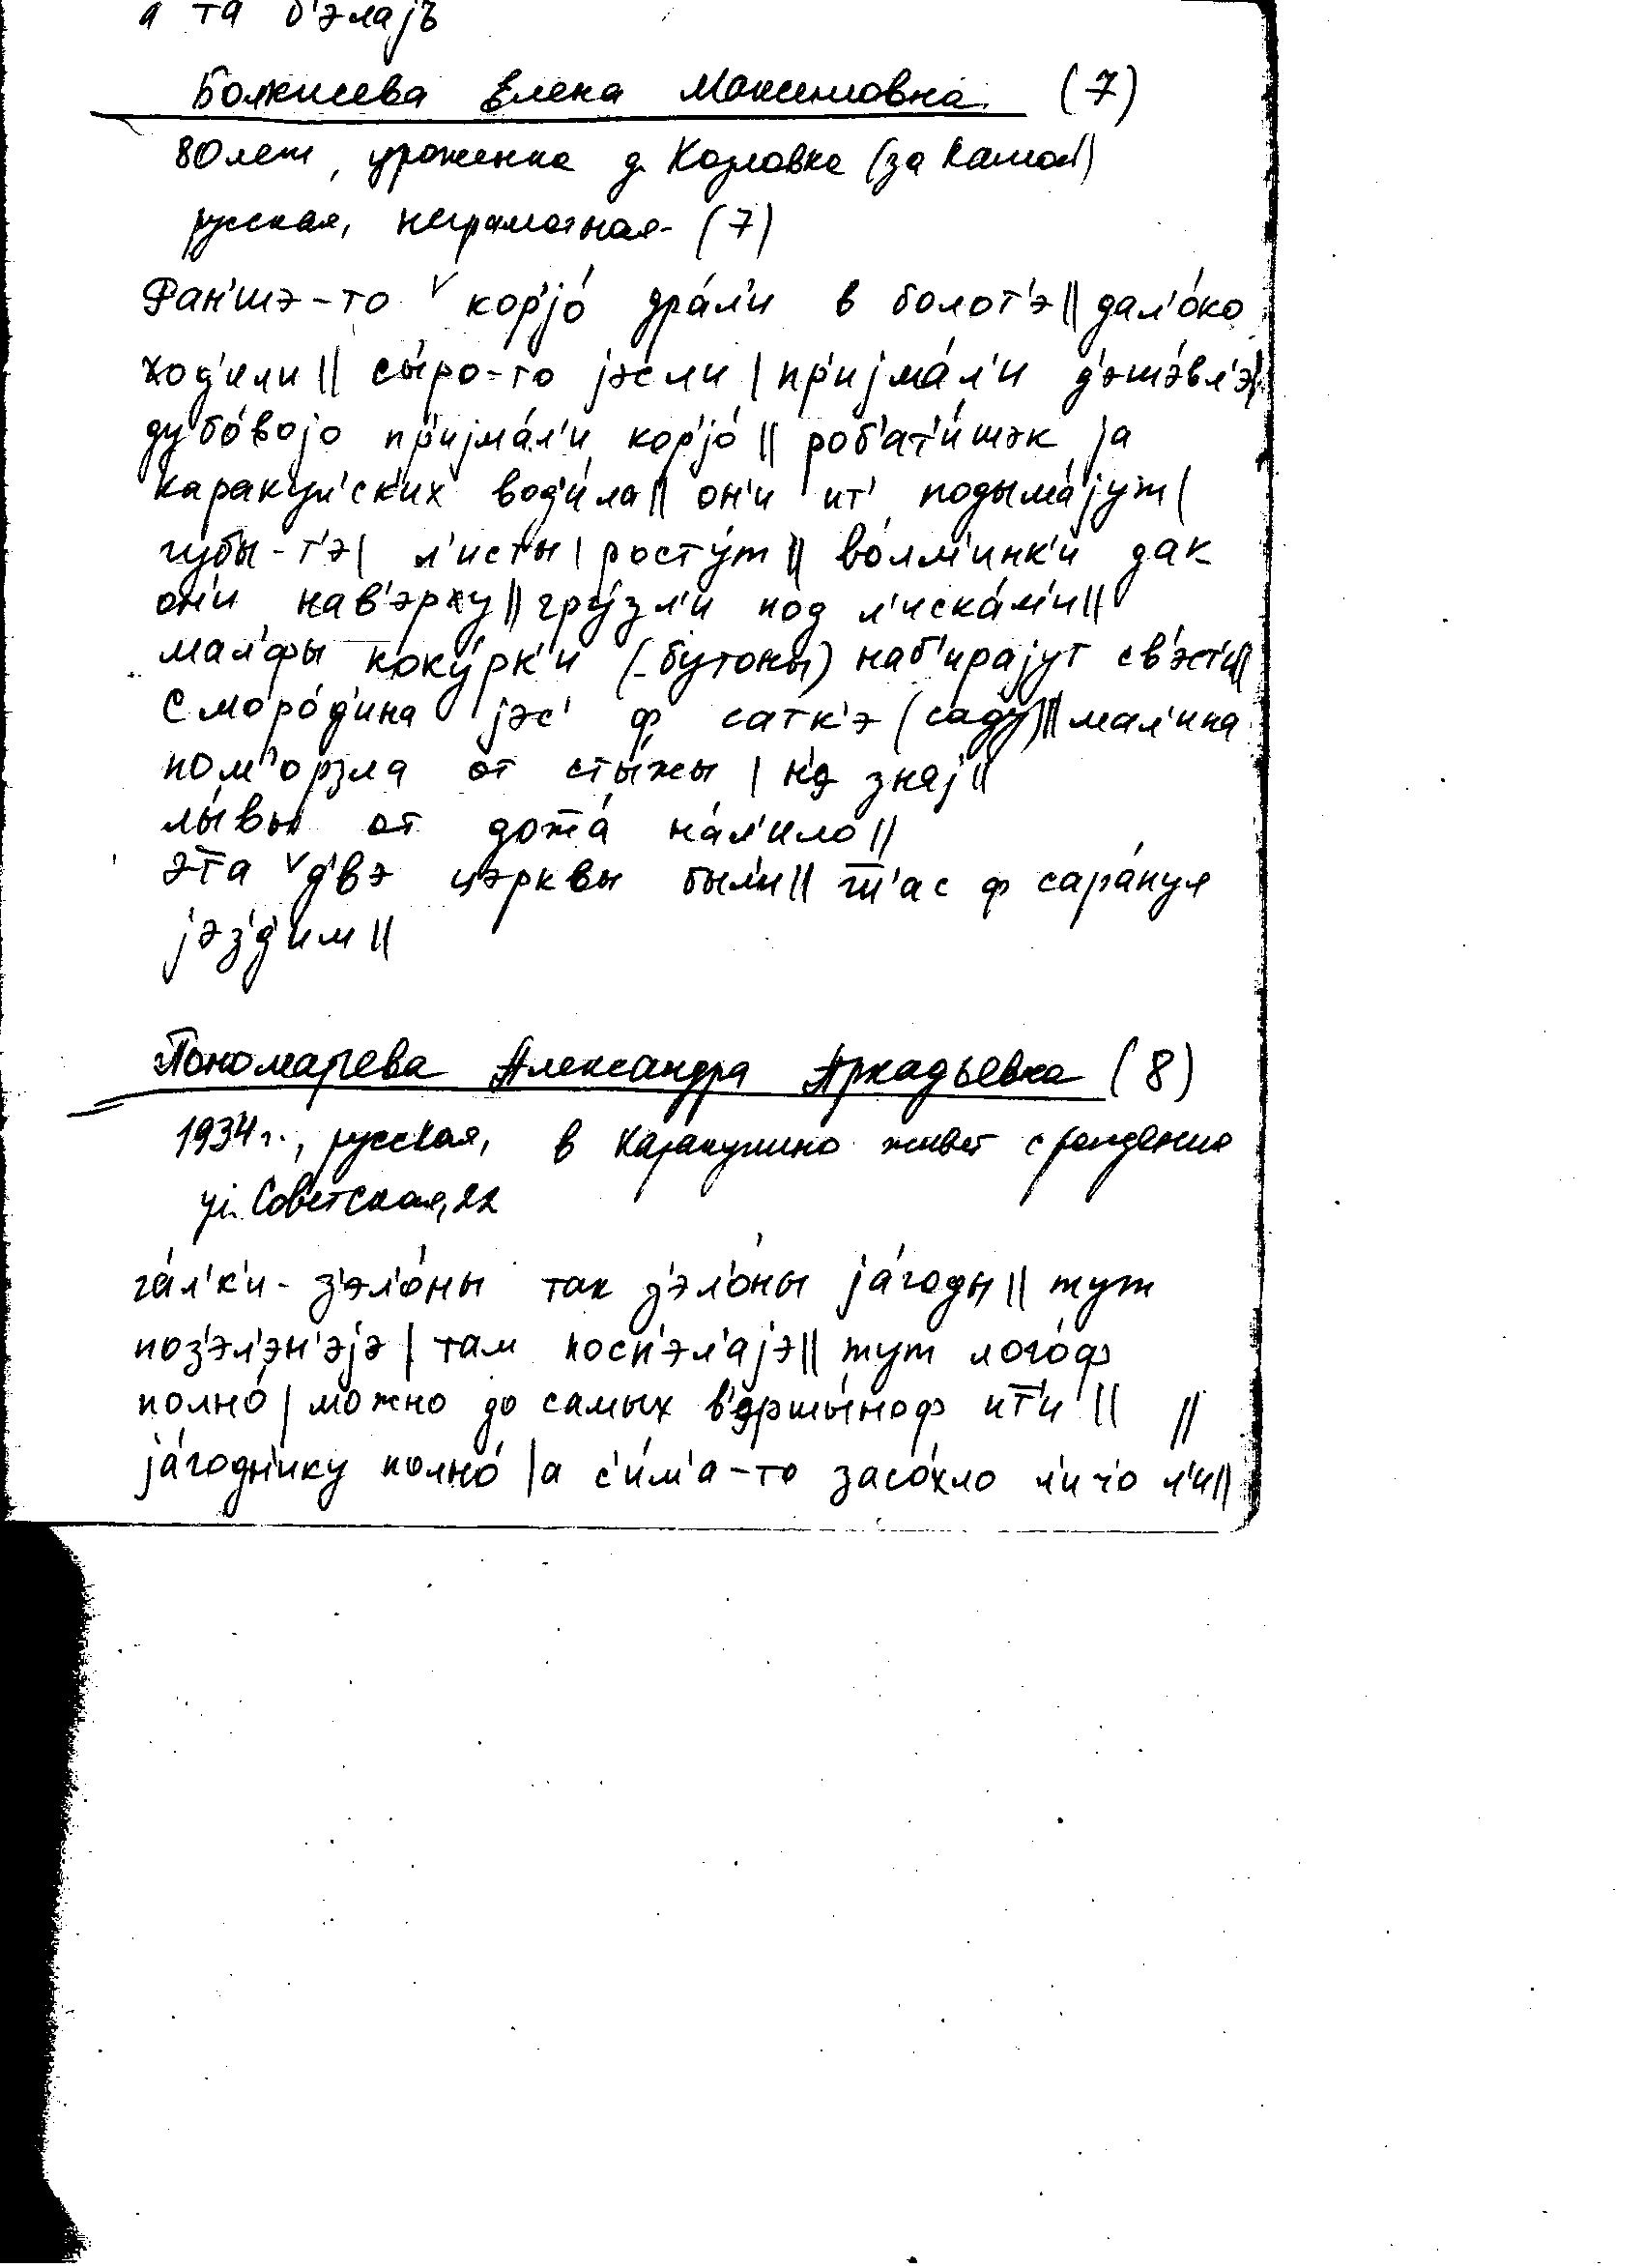 а та б'элајъ
Елена Максимовна (7)
80 лет, уроженка д. Козловка (за Камой)
русская, неграмотная (7)
Ран'шэ-то ˅ кор'јо́ дра́л'и в болот'э || дал'о́ко
ход'или || сы́ро-то јэсли | пр'ијма́л'и д'эшэ́вл'э |
дубо́војо пр'ијма́л'и кор'јо́ || роб'ат'и́шэк ја
каракул'ск'их вод'и́ла || он'и ит' подыма́јут |
губы-т'э | л'исты | росту́т || во́лм'инк'и дак
он'и нав'эрху || гру́зл'и под л'иска́м'и ||
мал'фы коку́рк'и (-бутоны) наб'ирајут св'эст'и ||
Сморо́д'ина јэс' ф сатк'э (саду) || мал'ина
пом'орзла от сты́жы | н'э знај ||
лы́вы от дожа́ на́л'ило ||
эта ˅ д'вэ цэрквы был'и || ш'ас ф сара́пул
јэз'д'им ||
Пономарева Александра Аркадьевна (8)
1934 г., русская, в Каракулино живет с рождения
ул. Советская, 22
га́л'к'и - з'эл'о́ны так з'эл'о́ны ја́годы || тут
поз'эл'эн'эјэ | там посп'эл'эјэ || тут лого́ф
полно́ | можно до самых в'эршы́ноф ит'и || ||
ја́годн'ику полно́ | а с'и́м'а-то засо́хло л'и ч'о л'и ||